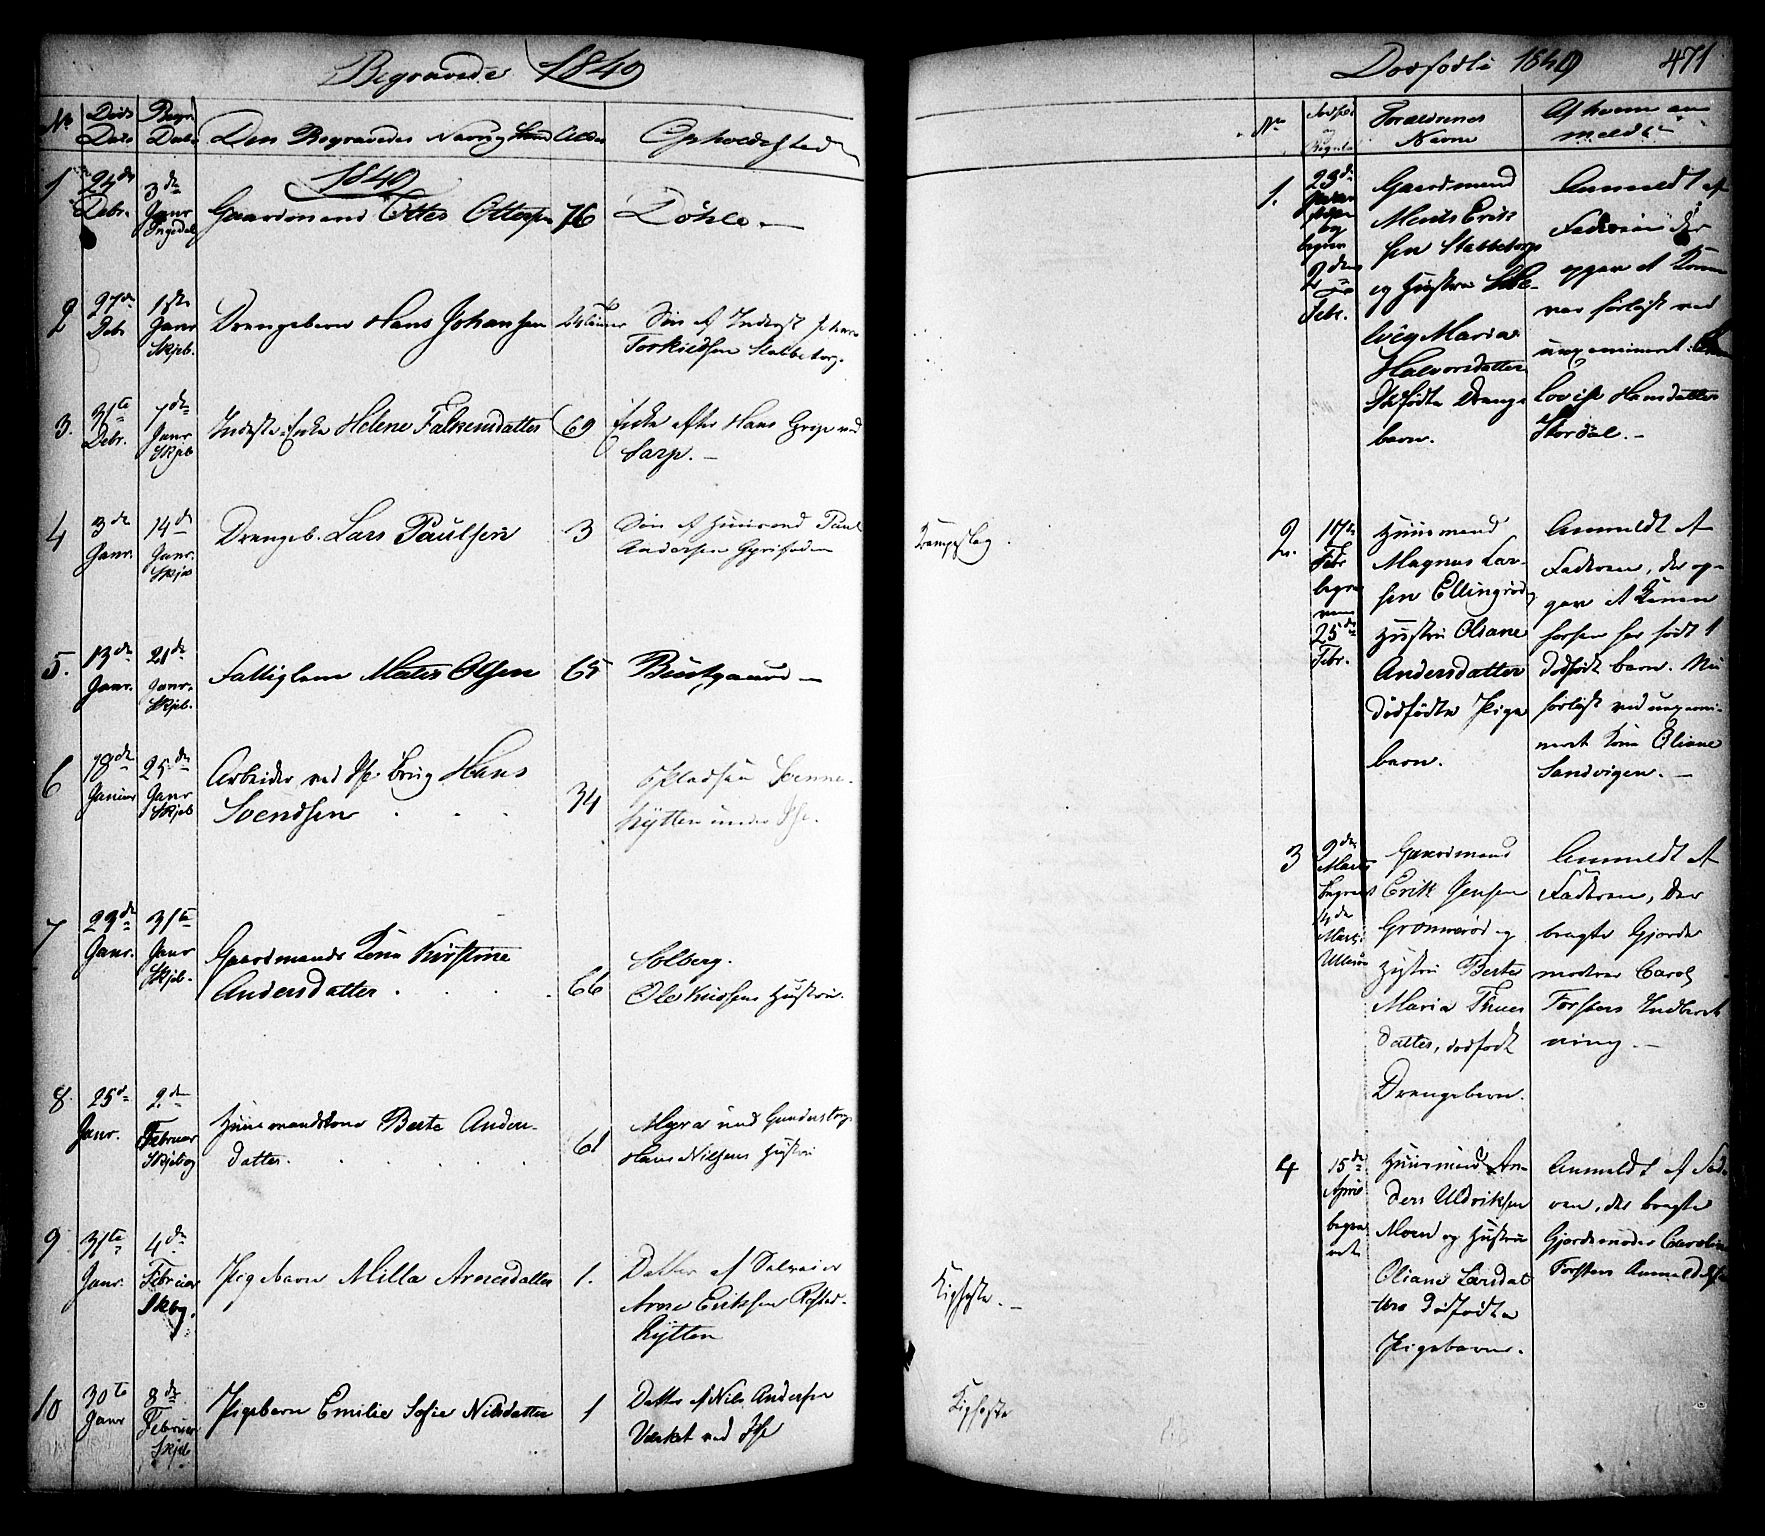 Begravede 1849
No Døds Date Begr. Date Den Begravedes Navn og Stand Alder Opholdssted
1849
1 24de Debr. 3de Janr Ingedal Gaardmand Otter Ottersen 76 Döhle.—
2 27de Debr 1ste Janr Skjeb. Drengebarn Hans Johansen Sön af Inderst Johan
Torkildsen Stabbetorp.
3. 31te Debr. 7de Janr Skjeb Inderste Enke Helene Falkensdatter 69 Enke efter Hans Grip ved
Sarp.—
4 3de Janr. 14de Janr. Skjeb Drengeb. Lars Paulsen 3 Sön af Huusmand Paul
Andersen Krampslag
5. 13de Janr. 21de Janr. Skjeb. Fattiglem Mates Olsen 65 —
6 18de Januar 25de Janr Skjeb Arbeider ved Ise brug Hans
Svendsen 34 Pladsen Svenne-
hytten under Ise.
7 23de Janr. 31te Janr Skjeb. Gaardmands Kone Kirstine
Andersdatter 66 Solberg.
Ole Knudsens Hustru.
8 25de Janr. 2den Februar Skjeberg Huusmandskone Berte Anders-
datter. 61 Myra ved Gunderstorp
Hans Nilsens Hustru
9 31te Janr. 4de Februar Skbg. Pigebarn Milla Arnesdatter 1. Datter af
Arne Eriksen
hytten Kighoste.—
10 30te Janr 8de Februar Skjeb Pigebarn Emilie Sofie Nilsdatter 1 Datter af Nils Andersen
Værket ved Ise Kighoste
Dødfødte 1849 471
No Dødfødt og Begravet Forældrenes Navne Af hvem anmeldt
1. 23de
begravet
2den
Febr.
Gaardmand
Eriks
sen Stabbetorp
og Hustru
Maria
Halvorsdatter
Dødfødte Drenge
barn.
Anmeldt af
Faderen der
opgav at Konen
var forløst ved
uexamineret
Lovise Hansdatter
Stordal.—
2. 17de
Febr
begra
vene
25de
Febr.
Huusmand
Magnus Lar-
sen Ellingrød,
Hustru Oliane
Andersdatter
dödfödte Pige
barn.
Anmeldt af
Faderen, der op-
gav at Konen
forhen har födt 1
dødfødt barn. Nu
forløst ved uexami-
neret Kone Oliane
Sandvigen.—
3 9de
Marts
begravet
Marts
Ullerøe
Gaardmand
Erik Jensen
Grønnerød og
Hustru Berte
Maria Thues
datter, dødfødt
Drengebarn.
Anmeldt af
Faderen, der
bragte Gjorde
moder Carol.
Forstens Indberet
ning.—
4 15de
April
begra
vet
Huusmand An-
ders Uldriksen
Moen og Hustru
Oliane Larsdat
ters Dødfødte
Pigebarn.
Anmeldt af Fad-
ren, der bragte
Gjordemoder Caroline
Forstens Anmeldelse